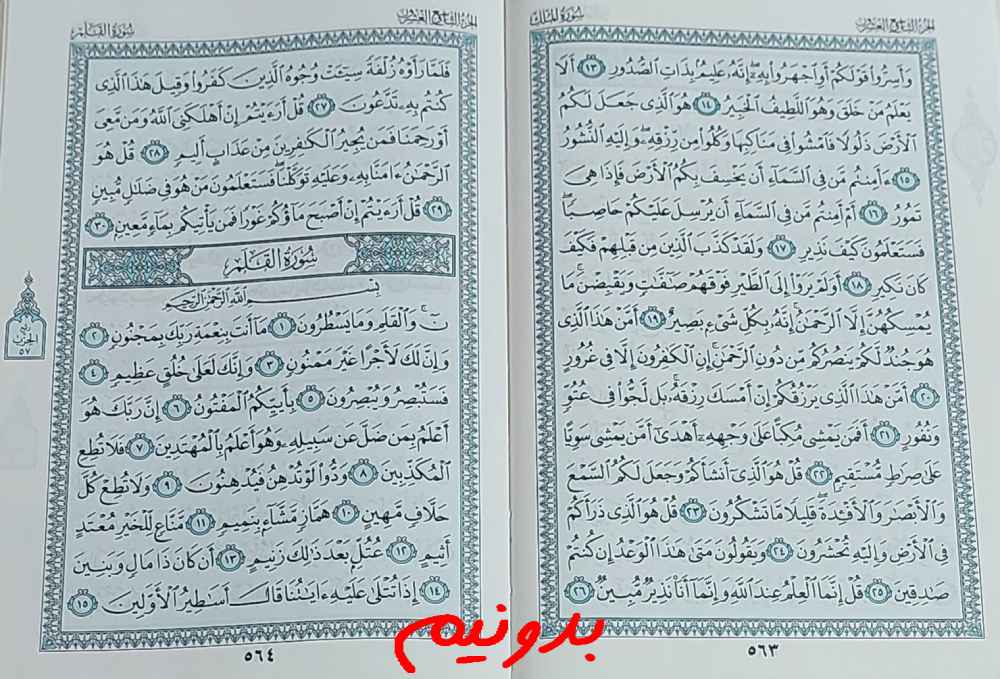 الجزء التاسع والعشرون
سورة الملك
وَأَسِرُّوا۟ قَوْلَكُمْ أَوِ ٱجْهَرُوا۟ بِهِۦٓ ۖ إِنَّهُۥ عَلِيمٌۢ بِذَاتِ ٱلصُّدُورِ ١٣ أَلَا
يَعْلَمُ مَنْ خَلَقَ وَهُوَ ٱللَّطِيفُ ٱلْخَبِيرُ ١٤ هُوَ ٱلَّذِى جَعَلَ لَكُمُ
ٱلْأَرْضَ ذَلُولًا فَٱمْشُوا۟ فِى مَنَاكِبِهَا وَكُلُوا۟ مِن رِّزْقِهِۦ ۖ وَإِلَيْهِ ٱلنُّشُورُ
١٥ ءَأَمِنتُم مَّن فِى ٱلسَّمَآءِ أَن يَخْسِفَ بِكُمُ ٱلْأَرْضَ فَإِذَا هِىَ
تَمُورُ ١٦ أَمْ أَمِنتُم مَّن فِى ٱلسَّمَآءِ أَن يُرْسِلَ عَلَيْكُمْ حَاصِبًا ۖ
فَسَتَعْلَمُونَ كَيْفَ نَذِيرِ ١٧ وَلَقَدْ كَذَّبَ ٱلَّذِينَ مِن قَبْلِهِمْ فَكَيْفَ
كَانَ نَكِيرِ ١٨ أَوَلَمْ يَرَوْا۟ إِلَى ٱلطَّيْرِ فَوْقَهُمْ صَٰٓفَّٰتٍ وَيَقْبِضْنَ ۚ مَا
يُمْسِكُهُنَّ إِلَّا ٱلرَّحْمَٰنُ ۚ إِنَّهُۥ بِكُلِّ شَىْءٍۭ بَصِيرٌ ١٩ أَمَّنْ هَٰذَا ٱلَّذِى
هُوَ جُندٌ لَّكُمْ يَنصُرُكُم مِّن دُونِ ٱلرَّحْمَٰنِ ۚ إِنِ ٱلْكَٰفِرُونَ إِلَّا فِى غُرُورٍ
٢٠ أَمَّنْ هَٰذَا ٱلَّذِى يَرْزُقُكُمْ إِنْ أَمْسَكَ رِزْقَهُۥ ۚ بَل لَّجُّوا۟ فِى عُتُوٍّ
وَنُفُورٍ ٢١ أَفَمَن يَمْشِى مُكِبًّا عَلَىٰ وَجْهِهِۦٓ أَهْدَىٰٓ أَمَّن يَمْشِى سَوِيًّا
عَلَىٰ صِرَٰطٍ مُّسْتَقِيمٍ ٢٢ قُلْ هُوَ ٱلَّذِىٓ أَنشَأَكُمْ وَجَعَلَ لَكُمُ ٱلسَّمْعَ
وَٱلْأَبْصَٰرَ وَٱلْأَفْـِٔدَةَ ۖ قَلِيلًا مَّا تَشْكُرُونَ ٢٣ قُلْ هُوَ ٱلَّذِى ذَرَأَكُمْ
فِى ٱلْأَرْضِ وَإِلَيْهِ تُحْشَرُونَ ٢٤ وَيَقُولُونَ مَتَىٰ هَٰذَا ٱلْوَعْدُ إِن كُنتُمْ
صَٰدِقِينَ ٢٥ قُلْ إِنَّمَا ٱلْعِلْمُ عِندَ ٱللَّهِ وَإِنَّمَآ أَنَا۠ نَذِيرٌ مُّبِينٌ ٢٦
٥٦٣
الجزء التاسع والعشرون
سورة القلم
فَلَمَّا رَأَوْهُ زُلْفَةً سِيٓـَٔتْ وُجُوهُ ٱلَّذِينَ كَفَرُوا۟ وَقِيلَ هَٰذَا ٱلَّذِى
كُنتُم بِهِۦ تَدَّعُونَ ٢٧ قُلْ أَرَءَيْتُمْ إِنْ أَهْلَكَنِىَ ٱللَّهُ وَمَن مَّعِىَ
أَوْ رَحِمَنَا فَمَن يُجِيرُ ٱلْكَٰفِرِينَ مِنْ عَذَابٍ أَلِيمٍ ٢٨ قُلْ هُوَ
ٱلرَّحْمَٰنُ ءَامَنَّا بِهِۦ وَعَلَيْهِ تَوَكَّلْنَا ۖ فَسَتَعْلَمُونَ مَنْ هُوَ فِى ضَلَٰلٍ مُّبِينٍ
٢٩ قُلْ أَرَءَيْتُمْ إِنْ أَصْبَحَ مَآؤُكُمْ غَوْرًا فَمَن يَأْتِيكُم بِمَآءٍ مَّعِينٍۭ ٣٠
سُورَةُ القَلَمِ
بِسْمِ ٱللَّهِ ٱلرَّحْمَٰنِ ٱلرَّحِيمِ
نٓ ۚ وَٱلْقَلَمِ وَمَا يَسْطُرُونَ ١ مَآ أَنتَ بِنِعْمَةِ رَبِّكَ بِمَجْنُونٍ ٢
وَإِنَّ لَكَ لَأَجْرًا غَيْرَ مَمْنُونٍ ٣ وَإِنَّكَ لَعَلَىٰ خُلُقٍ عَظِيمٍ ٤
فَسَتُبْصِرُ وَيُبْصِرُونَ ٥ بِأَييِّكُمُ ٱلْمَفْتُونُ ٦ إِنَّ رَبَّكَ هُوَ
أَعْلَمُ بِمَن ضَلَّ عَن سَبِيلِهِۦ وَهُوَ أَعْلَمُ بِٱلْمُهْتَدِينَ ٧ فَلَا تُطِعِ
ٱلْمُكَذِّبِينَ ٨ وَدُّوا۟ لَوْ تُدْهِنُ فَيُدْهِنُونَ ٩ وَلَا تُطِعْ كُلَّ
حَلَّافٍ مَّهِينٍ ١٠ هَمَّازٍ مَّشَّآءٍۭ بِنَمِيمٍ ١١ مَّنَّاعٍ لِّلْخَيْرِ مُعْتَدٍ
أَثِيمٍ ١٢ عُتُلٍّۭ بَعْدَ ذَٰلِكَ زَنِيمٍ ١٣ أَن كَانَ ذَا مَالٍ وَبَنِينَ
١٤ إِذَا تُتْلَىٰ عَلَيْهِ ءَايَٰتُنَا قَالَ أَسَٰطِيرُ ٱلْأَوَّلِينَ ١٥
ربع
الحزب
٥٧
٥٦٤
بدونیم